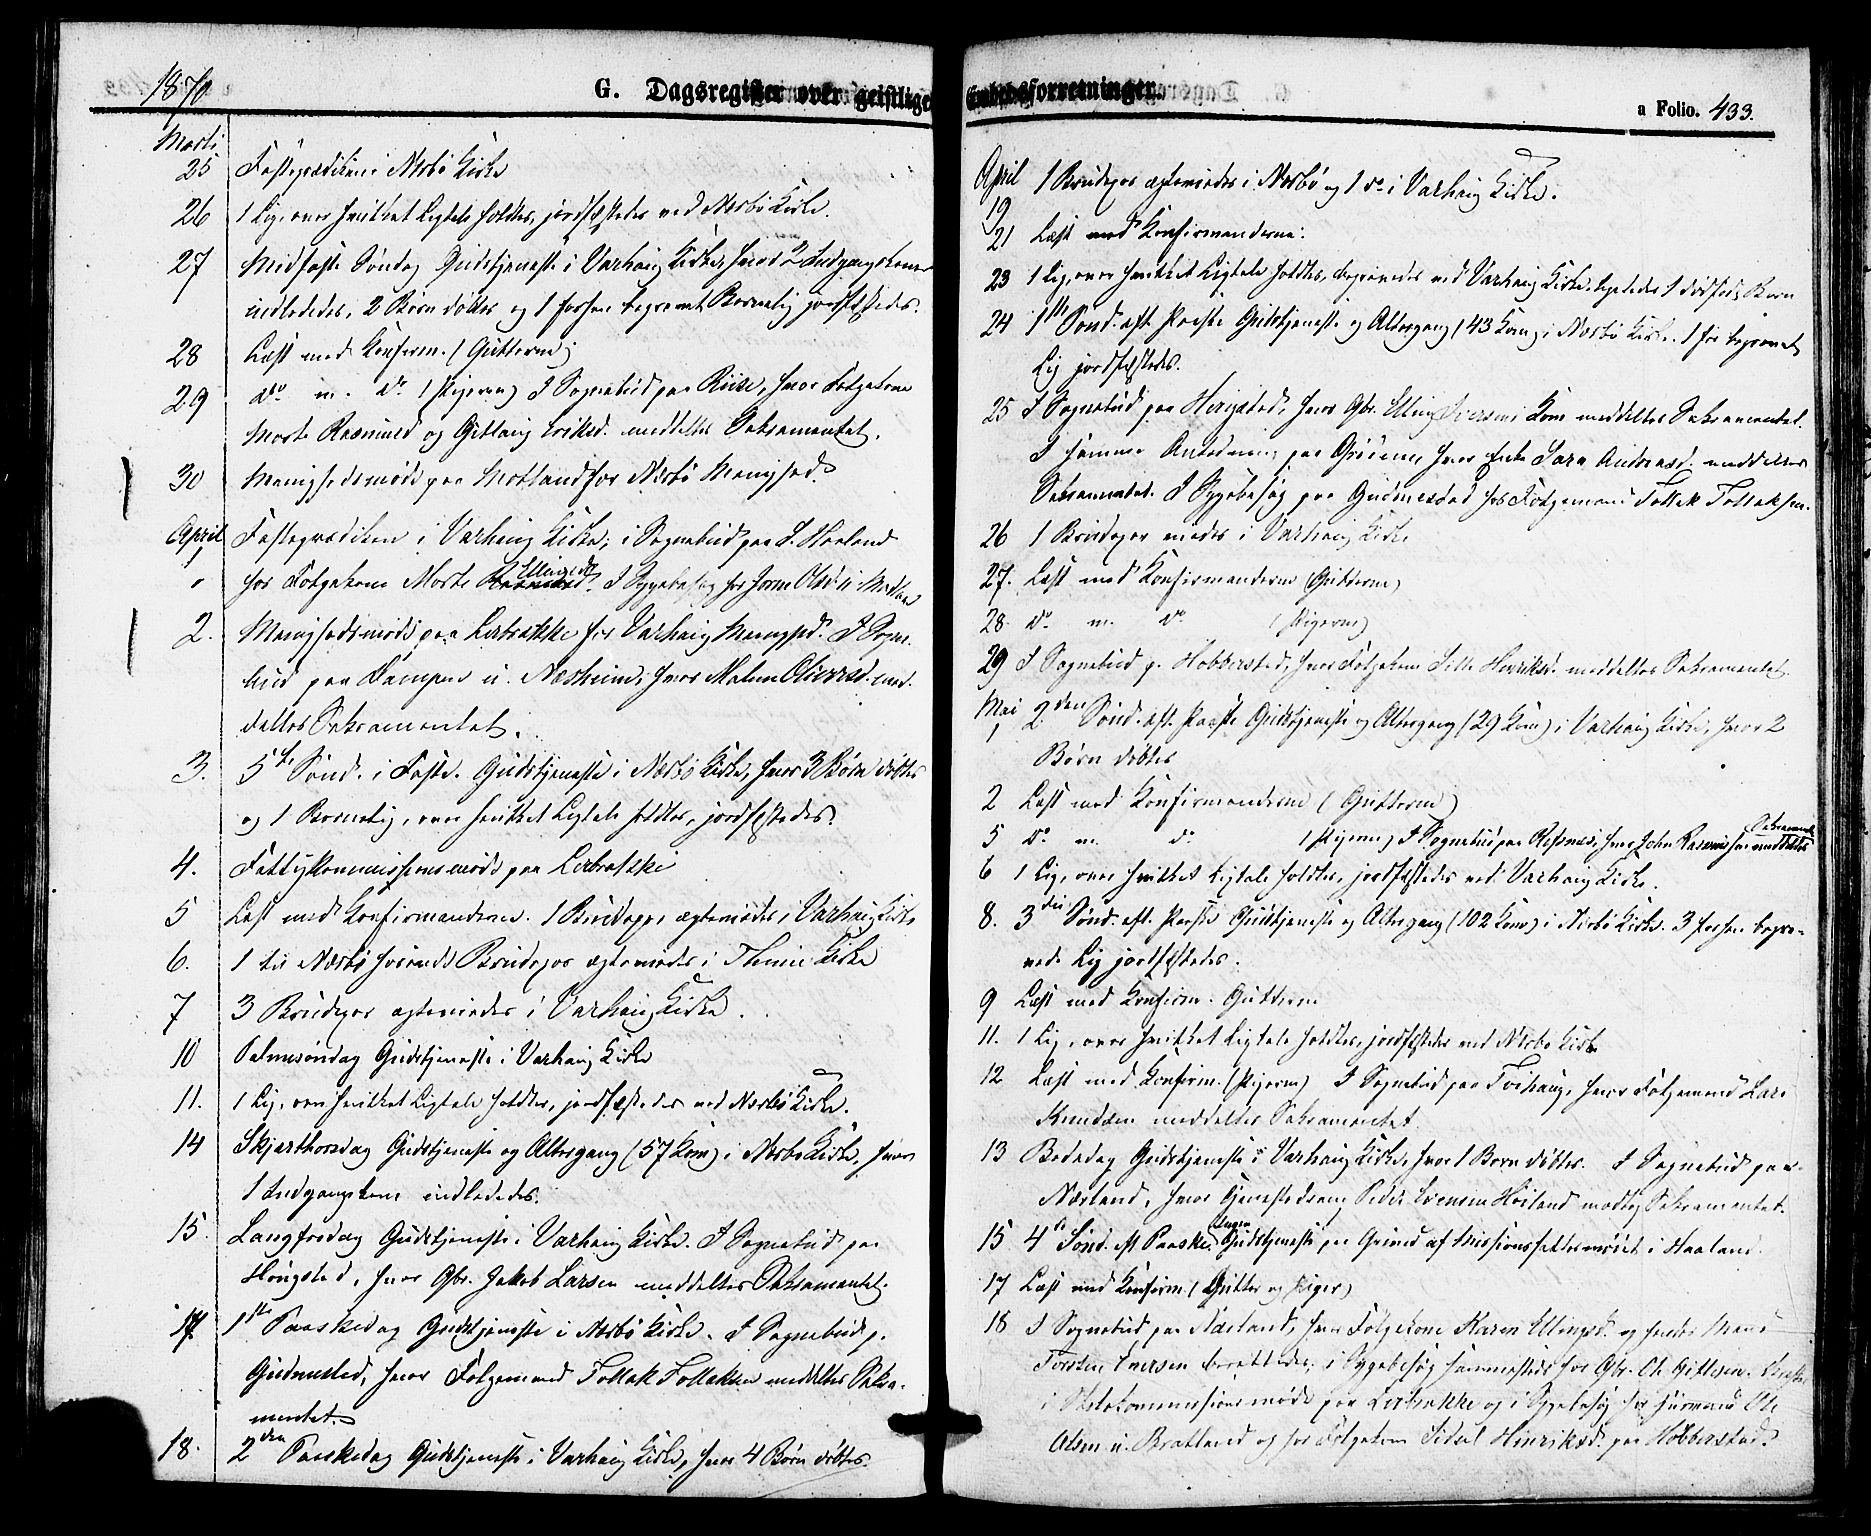 1870
G. Dagsregister over geistlige Embedsforretninger.
a Folio. 433.
Marts
25 Fasteprædiken i Nærbø Kirke
26 1 Lig, over hvilket Ligtale holdtes, jordfæstedes ved Nærbø Kirke.
27 Midfaste Søndag Gudstjeneste i Varhaug Kirke, hvor 2 Indgangskoner
indlededes, 2 Børn døbtes og 1 forhen begravet Barnelig jordfæstedes.
28 Læst med Konfirm. (Gutterne)
29 do m. do (Pigerne) I Sognebud paa Riise, hvor Følgekone
Marte Rasmusd og Gitlaug Eriksd. meddeltes Sakramentet.
30 Menighedsmøde paa Motland for Nærbø Menighed.
April
1 Fasteprædiken i Varhaug Kirke; i Sognebud paa S. Haaland
hos Følgekone Marte Ellingsd. I Sygebesøg hos Jorine Olsd. u. Motland
2. Menighedsmøde paa Lerbrække for Varhaug Menighed. I Sogne-
bud paa Kampen u. Næsheim, hvor Malene Oliversd. med-
deltes Sakramentet.
3. 5te Sønd. i Faste. Gudstjeneste i Nærbø Kirke, hvor 3 Børn døbtes
og 1 Barnelig, over hvilket Ligtale holdtes, jordfæstedes.
4. Fattigkommissionsmøde paa Lerbrække
5 Læst med Konfirmanderne. 1 Brudepar ægteviedes i Varhaug Kirke
6. 1 til Nærbø hørende Brudepar ægteviedes i Thime Kirke
7 3 Brudepar ægteviedes i Varhaug Kirke.
10 Palmesøndag Gudstjeneste i Varhaug Kirke
11. 1 Lig, over hvilket Ligtale holdtes, jordfæstedes ved Nærbø Kirke.
14 Skjærthorsdag Gudstjeneste og Altergang (57 Kom) i Nærbø Kirke, hvor
1 Indgangskone indlededes.
15. Langfredag Gudstjeneste i Varhaug Kirke. I Sognebud paa
Høugstad, hvor Gbr. Jakob Larsen meddeltes Sakramentet.
17 1ste Paaskedag Gudstjeneste i Nærbø Kirke. I Sognebud p.
Gudmestad, hvor Følgemand Tollak Tollaksen meddeltes Sakra-
mentet.
18. 2den Paaskedag Gudstjeneste i Varhaug Kirke, hvor 4 Børn døbtes.
April
19 1 Brudepar ægteviedes i Nærbø og 1 do i Varhaug Kirke.
21 Læst med Konfirmanderne.
23 1 Lig, over hvilket Ligtale holdtes, begravedes ved Varhaug Kirke, ligeledes 1 dødfødt Barn
24 1ste Sønd. eft. Paaske Gudstjeneste og Altergang (43 Kom) i Nærbø Kirke. 1 før begravet
Lig jordfæstedes.
25 I Sognebud paa Herigstad, hvor Gbr. Elling Iversens Kone meddeltes Sakramentet.
I samme Anledning paa Grødem, hvor Enke Sara Andreasd. meddeltes
Sakramentet. I Sygebesøg paa Gudmestad hos Følgemand Tollak Tollaksen.
26 1 Brudepar viedes i Varhaug Kirke
27. Læst med Konfirmanderne (Gutterne)
28. do m. do (Pigerne)
29 I Sognebud p. Hobberstad, hvor Følgekone Sille Henriksd. meddeltes Sakramentet.
Mai
1 2den Sønd. eft. Paaske Gudstjeneste og Altergang (29 Kom) i Varhaug Kirke, hvor 2
Børn døbtes
2 Læst med Konfirmanderne (Gutterne)
5 do m. do (Pigerne) I Sognebud paa Refsnes, hvor John Rasmussen meddeltes Sakramentet
6 1 Lig, over hvilket Ligtale holdtes, jordfæstedes ved Varhaug Kirke.
8. 3die Sønd. eft. Paaske Gudstjeneste og Altergang (102 Kom) i Nærbø Kirke. 3 forhen begra-
vede Lig jordfæstedes.
9 Læst med Konfirm. Gutterne
11. 1 Lig, over hvilket Ligtale holdtes, jordfæstedes ved Nærbø Kirke
12 Læst med Konfirm. (Pigerne) I Sognebud paa Tvihaug, hvor Følgemand Lars
Knudsen meddeltes Sakramentet.
13 Bededag Gudstjeneste i Varhaug Kirke, hvor 1 Barn døbtes. I Sognebud paa
Nærland, hvor Tjenestedreng Peder Svensen Høiland modtog Sakramentet.
15 4de Sønd. eft Paaske. Ingen Gudstjeneste paa Grund af Missionsfællesmødet i Haaland.
17 Læst med Konfirm. (Gutter og Piger)
18 I Sognebud paa Nærland, hvor Følgekone Karen Ellingsd. og hendes Mand
Torsten Iversen berettedes; i Sygebesøg sammesteds hos Gbr. Ole Gitlesen.
i Skolekommissionsmøde paa Lerbrække og i Sygebesøg hos Huusmand Ole
Olsen u. Bratland og hos Følgekone Sidsel Hinriksd. paa Hobberstad.